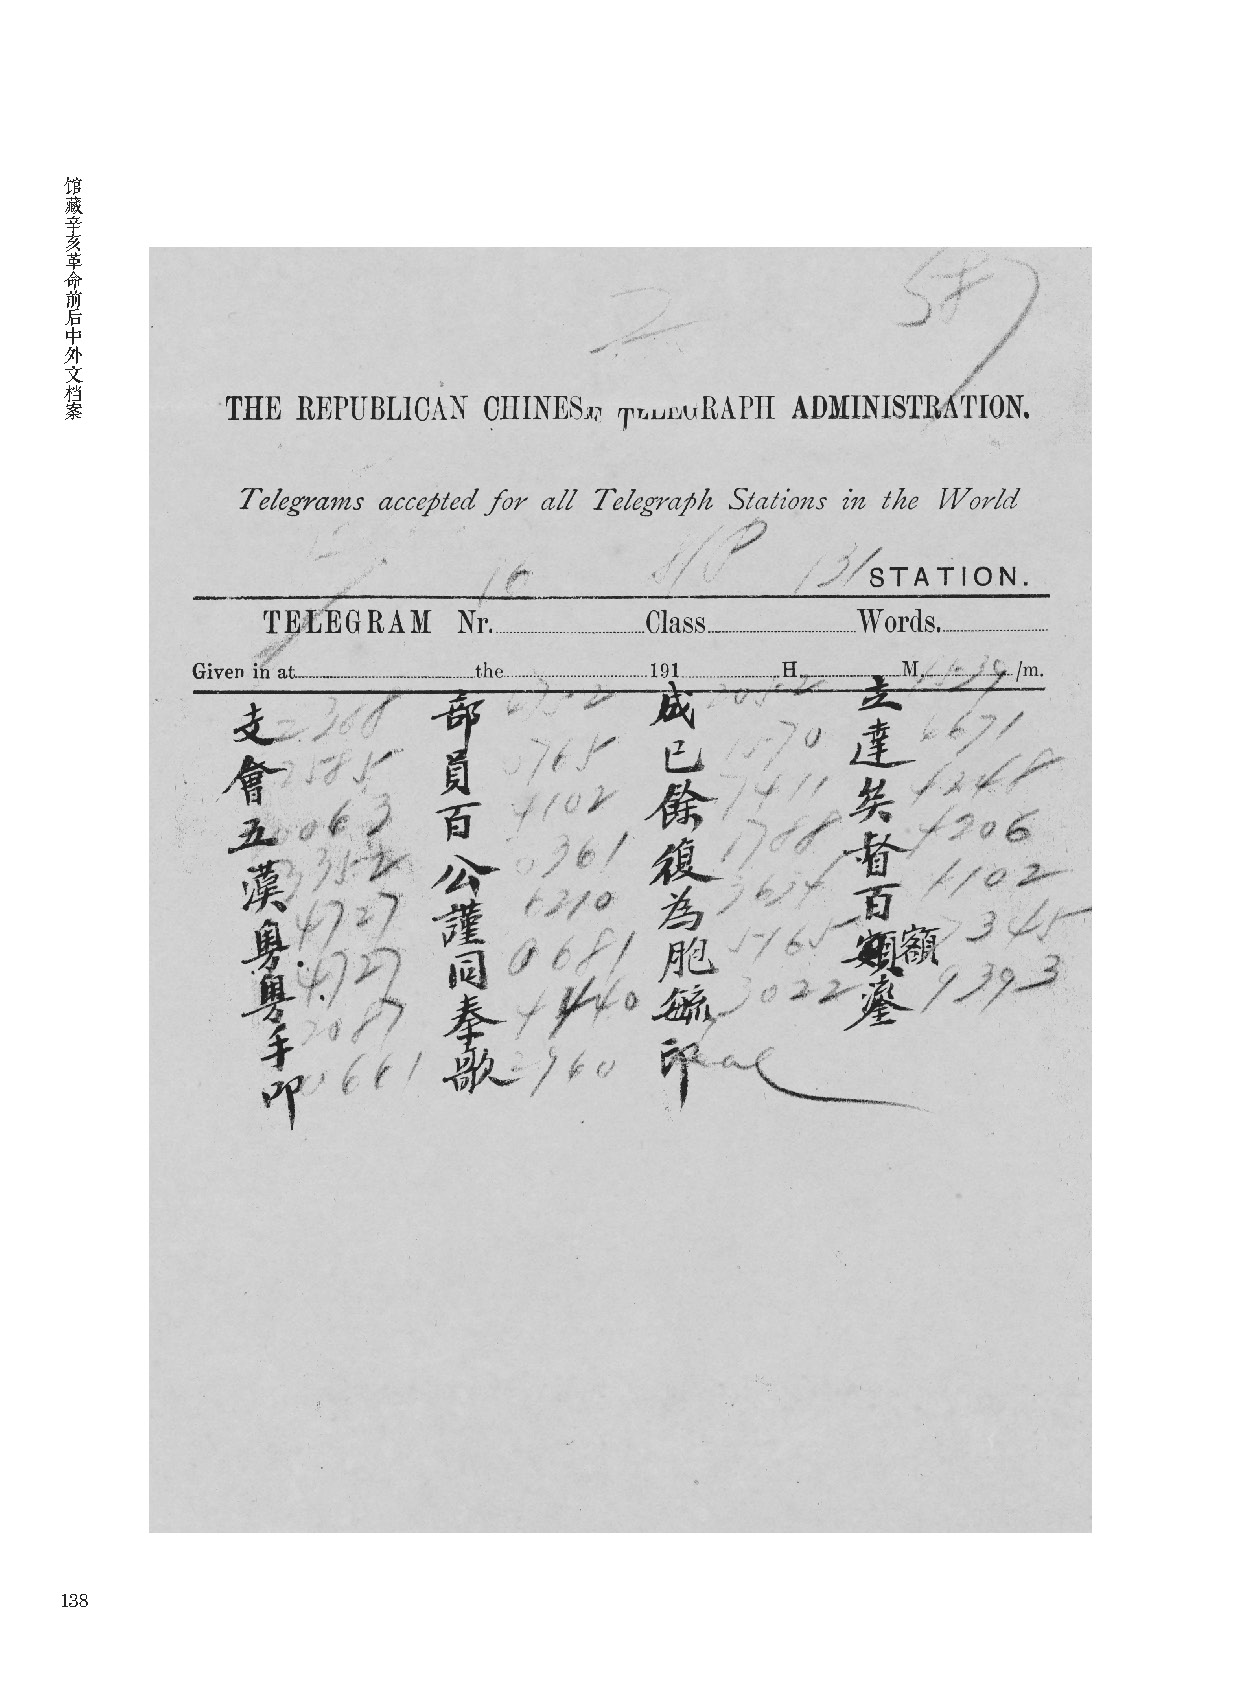 馆藏辛亥革命前后中外文档案
2
587
THE REPUBLICAN CHINESE TELEGRAPH ADMINISTRATION.
Telegrams accepted for all Telegraph Stations in the World
16 8/8 131 STATION.
TELEGRAM Nr. Class Words.
Given in at the 191 H. M. /m.
支 2368 部 成 2052 立
會 2585 員 5765 已 1570 達 6671
五 0063 百 4102 餘 7411 矣 4248
漢 3352 公 0361 復 1788 督 4206
粵 4727 謹 6210 為 3634 百 4102
粵 4727 同 0681 胞 5165 額 7345
手 2087 奉 3022 9393
叩 0661 歌 2960 印 Seal
138